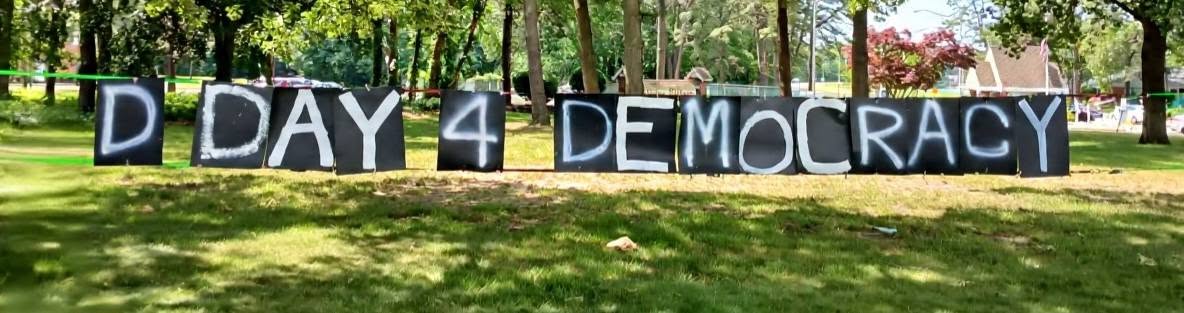 D DAY 4 DEMOCRACY